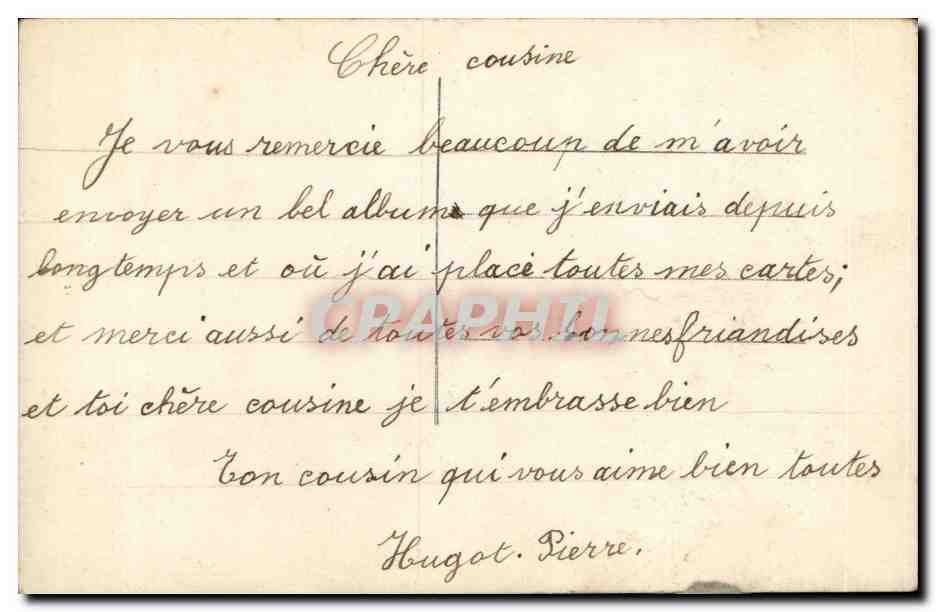 Chère cousine
Je vous remercie beaucoup de m'avoir
envoyer un bel album que j'enviais depuis
longtemps et où j'ai placé toutes mes cartes;
et merci aussi de toutes vos bonnes friandises
CPAPHIL
et toi chère cousine je t'embrasse bien
Ton cousin qui vous aime bien toutes
Hugot. Pierre.